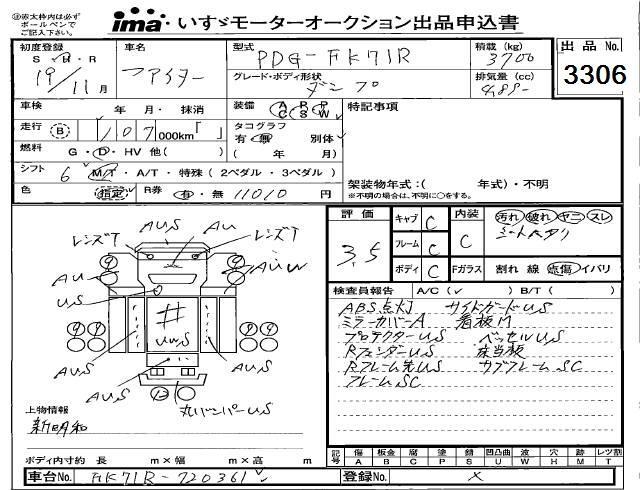 ㊟赤太枠内は必ず
ボールペンで
ご記入下さい。
ima いすゞモーターオークション出品申込書
初度登録 S・H・R 19/11月
車名 ファイター
型式 PDG-FK71R
積載(kg) 3700
出品No. 3306
グレード・ボディ形状 ダンプ
排気量(cc)
車検 年 月・ 抹消
装備 A P P C S W
特記事項
走行 B 107,000km「 」
タコグラフ 有・無 別体
( 年 月)
燃料 G・D・HV 他( )
シフト 6 M/T・A/T・特殊(2ペダル・3ペダル)
架装物年式:( 年式)・不明
※不明の場合は、不明に○をする。
色 指定
R券 有・無 11010 円
評価 3.5
キャブ C
フレーム C
ボディ C
内装 C
汚れ 破れ ヤニ スレ
シートヘタリ
Fガラス 割れ 線 点傷 イバリ
レンズT AUS AU レンズT
AU AUW
US
# UWS
AUS AUS
AUS AUS
丸バンパーUS
検査員報告 A/C(✓) B/T( )
ABS点灯 サイドガードUS
ミラーカバーA 看板M
プロテクターUS ベッセルUS
RフェンダーUS 床当板
Rフレーム先US サブフレームSC
フレームSC
上物情報
新明和
ボディ内寸約 長 m×幅 m×高 m
記号 傷 A 板金 B 腐 C 塗 P 錆 S 凹凸曲 U 波 W 穴 H 跡 M レツ割 T
車台No. FK71R-720361
登録No. ×